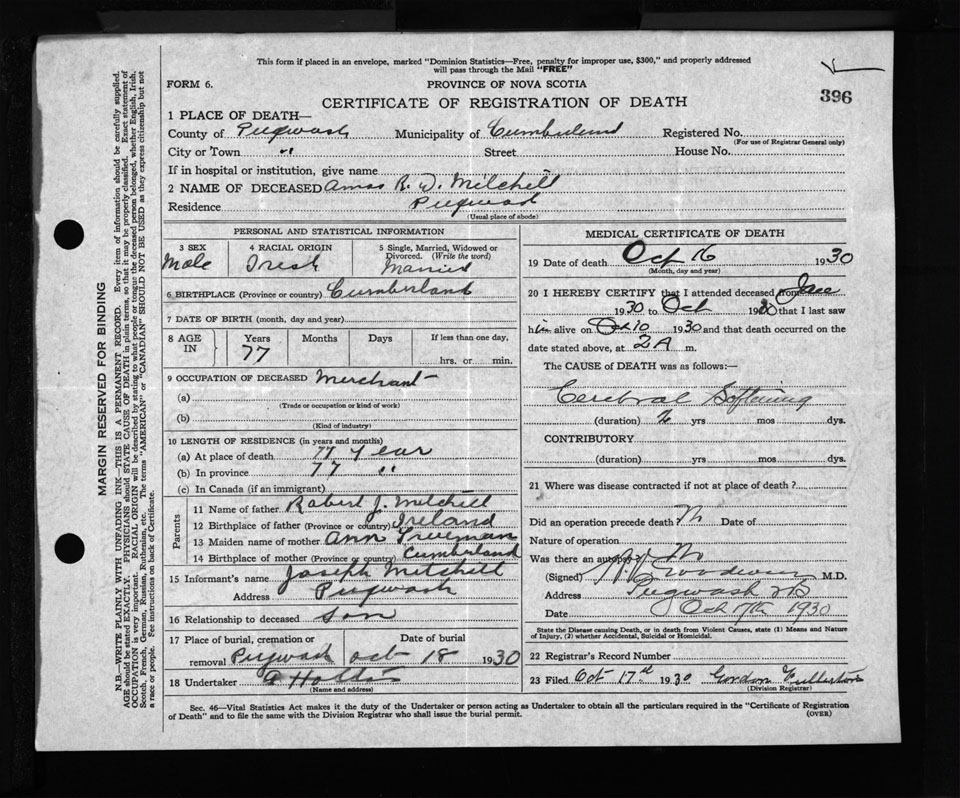 This form if placed in an envelope, marked "Dominion Statistics—Free, penalty for improper use, $300," and properly addressed
will pass through the Mail "FREE"
FORM 6.
PROVINCE OF NOVA SCOTIA
396
CERTIFICATE OF REGISTRATION OF DEATH
1 PLACE OF DEATH—
County of Pugwash Municipality of Cumberland Registered No.
(For use of Registrar General only)
City or Town " Street House No.
If in hospital or institution, give name
2 NAME OF DECEASED Amos R. W. Mitchell
Residence Pugwash
(Usual place of abode)
PERSONAL AND STATISTICAL INFORMATION
3 SEX 4 RACIAL ORIGIN 5 Single, Married, Widowed or
Divorced. (Write the word)
Male Irish Married
6 BIRTHPLACE (Province or country) Cumberland
7 DATE OF BIRTH (month, day and year)
8 AGE IN Years Months Days If less than one day,
77 hrs. or min.
9 OCCUPATION OF DECEASED Merchant
(a)
(Trade or occupation or kind of work)
(b)
(Kind of industry)
10 LENGTH OF RESIDENCE (in years and months)
(a) At place of death 77 year
(b) In province 77 "
(c) In Canada (if an immigrant)
Parents
11 Name of father Robert J. Mitchell
12 Birthplace of father (Province or country) Ireland
13 Maiden name of mother Ann Trueman
14 Birthplace of mother (Province or country) Cumberland
15 Informant's name Joseph Mitchell
Address Pugwash
16 Relationship to deceased Son
17 Place of burial, cremation or Date of burial
removal Pugwash Oct 18 1930
18 Undertaker
(Name and address)
MEDICAL CERTIFICATE OF DEATH
19 Date of death Oct 16 1930
(Month, day and year)
20 I HEREBY CERTIFY that I attended deceased from
1930 to Oct 1930 that I last saw
him alive on Oct 10 1930 and that death occurred on
date stated above, at 2 A m.
The CAUSE of DEATH was as follows:—
Cerebral Softening
(duration) 2 yrs mos dys.
CONTRIBUTORY
(duration) yrs mos dys.
21 Where was disease contracted if not at place of death?
Did an operation precede death No Date of
Nature of operation
Was there an autopsy? No
(Signed) M.D.
Address Pugwash NS
Date Oct 17th 1930
State the Disease causing Death, or in death from Violent Causes, state (1) Means and Nature
of Injury, (2) whether Accidental, Suicidal or Homicidal.
22 Registrar's Record Number
23 Filed Oct 17th 1930 Gordon Fullerton
(Division Registrar)
Sec. 46—Vital Statistics Act makes it the duty of the Undertaker or person acting as Undertaker to obtain all the particulars required in the "Certificate of Registration
of Death" and to file the same with the Division Registrar who shall issue the burial permit.
(OVER)
MARGIN RESERVED FOR BINDING
N.B.—WRITE PLAINLY WITH UNFADING INK—THIS IS A PERMANENT RECORD. Every item of information should be carefully supplied.
AGE should be stated EXACTLY. PHYSICIANS should STATE CAUSE OF DEATH in plain terms, so that it may be properly classified. Exact statement of
OCCUPATION is very important. RACIAL ORIGIN will be described by stating to what people or tongue the deceased person belonged, whether English, Irish,
Scotch, French, German, Russian, Ruthenian, etc. The terms "AMERICAN" or "CANADIAN" SHOULD NOT BE USED as they express citizenship but not
a race or people. See instructions on back of Certificate.